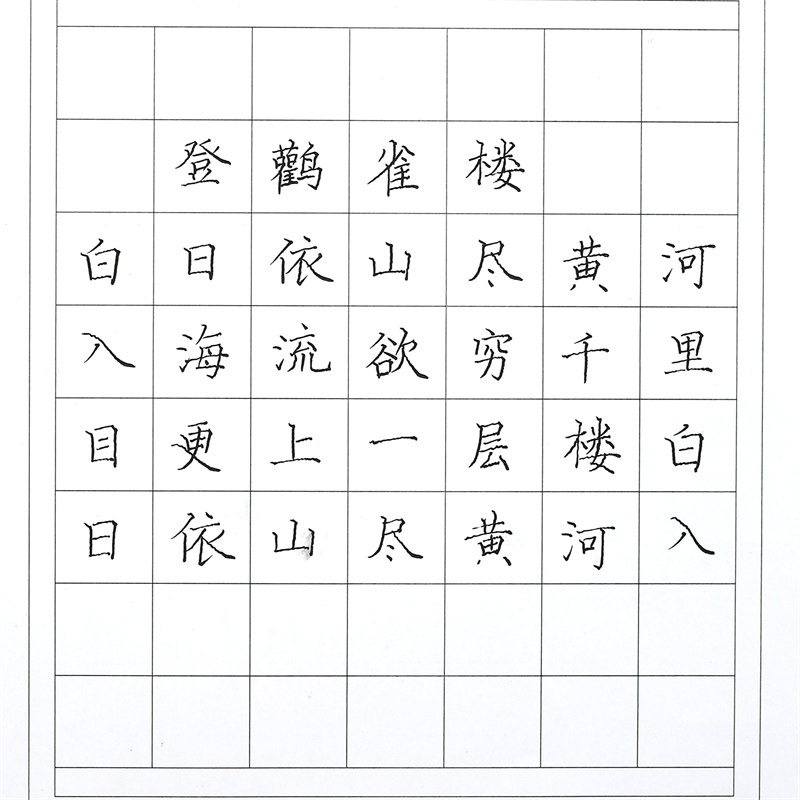 登鹳雀楼
白日依山尽黄河
入海流欲穷千里
目更上一层楼白
日依山尽黄河入